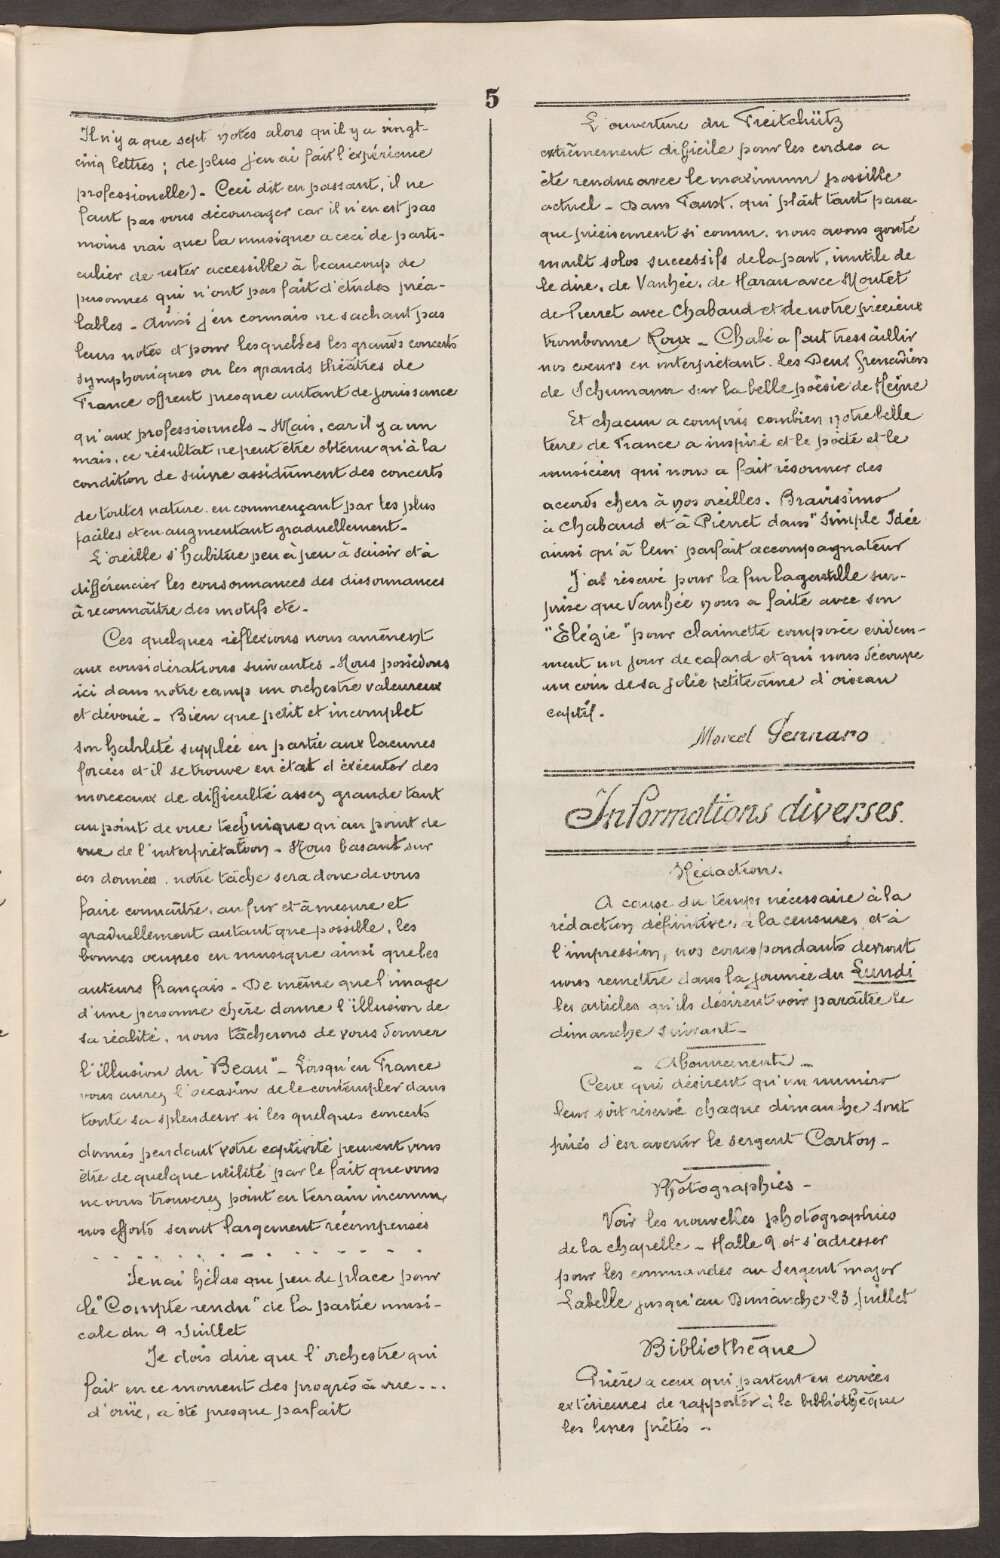 5
Il n'y a que sept notes alors qu'il y a vingt-
cinq lettres ; de plus j'en ai fait l'expérience
professionelle) - Ceci dit en passant, il ne
faut pas vous décourager car il n'en est pas
moins vrai que la musique a ceci de parti-
culier de rester accessible à beaucoup de
personnes qui n'ont pas fait d'études préa-
lables - Ainsi j'en connais ne sachant pas
leurs notes et pour lesquelles les grands concerts
symphoniques ou les grands théâtres de
France offrent presque autant de jouissance
qu'aux professionnels - Mais, car il y a un
mais, ce résultat ne peut être obtenu qu'à la
condition de suivre assidûment des concerts
de toutes nature en commençant par les plus
faciles et en augmentant graduellement -
L'oreille s'habitue peu à peu à saisir et à
différencier les consonnances des dissonnances
à reconnaître des motifs etc -
Ces quelques réflexions nous amènent
aux considérations suivantes - Nous possédons
ici dans notre camp un orchestre valeureux
et dévoué - Bien que petit et incomplet
son habileté supplée en partie aux lacunes
forcées et il se trouve en état d'éxécuter des
morceaux de difficulté assez grande tant
au point de vue technique qu'au point de
vue de l'interprétation - Nous basant sur
ces données, notre tâche sera donc de vous
faire connaître, au fur et à mesure et
graduellement autant que possible, les
bonnes œuvres en musique ainsi que les
auteurs français - De même que l'image
d'une personne chère donne l'illusion de
sa réalité, nous tâcherons de vous donner
l'illusion du "Beau" - Lorsqu'en France
vous aurez l'occasion de le contempler dans
toute sa splendeur si les quelques concerts
donnés pendant votre captivité peuvent vous
être de quelque utilité par le fait que vous
ne vous trouverez point en terrain inconnu,
nos efforts seront largement récompensés
. . . . . . . . . . . . . . . .
Je n'ai hélas que peu de place pour
le "Compte rendu" de la partie musi-
cale du 9 Juillet
Je dois dire que l'orchestre qui
fait en ce moment des progrès à vue . . .
d'ouïe, a été presque parfait
L'ouverture du Freitchütz
extrêmement dificile pour les cordes a
été rendue avec le maximum possible
actuel - Dans Faust, qui plait tant parce
que précisement si connu, nous avons gouté
moult solos successifs de la part, inutile de
le dire, de Vanhée, de Harau avec Moutet
de Pierret avec Chabaud et de notre précieux
trombonne Roux - Chabé a fait tressaillir
nos coeurs en interprétant Les Deux grenadiers
de Schumann sur la belle poésie de Heine
Et chacun a compris combien notre belle
terre de France a inspiré et le poète et le
musicien qui nous a fait résonner des
accords chers à nos oreilles. Bravissimo
à Chabaud et à Pierret dans "Simple Idée
ainsi qu'à leur parfait accompagnateur
J'ai réservé pour la fin la gentille sur-
prise que Vanhée nous a faite avec son
"Elégie" pour clarinette composée évidem-
ment un jour de cafard et qui nous découvre
un coin de sa jolie petite âme d'oiseau
captif.
Marcel Gennaro
Informations diverses.
Rédaction.
A cause du temps nécessaire à la
rédaction définitive, à la censure, et à
l'impression, nos correspondants devront
nous remettre dans la journée du Lundi
les articles qu'ils désirent voir paraître le
dimanche suivant -
- Abonnement -
Ceux qui désirent qu'un numéro
leur soit réservé chaque dimanche sont
priés d'en avertir le sergent Carton -
Photographies -
Voir les nouvelles photographies
de la chapelle - Halle 9 et s'adresser
pour les commandes au Sergent major
Labelle jusqu'au Dimanche 23 Juillet
Bibliothèque
Prière a ceux qui partent en corvées
extérieures de rapporter à la bibliothèque
les livres prêtés -